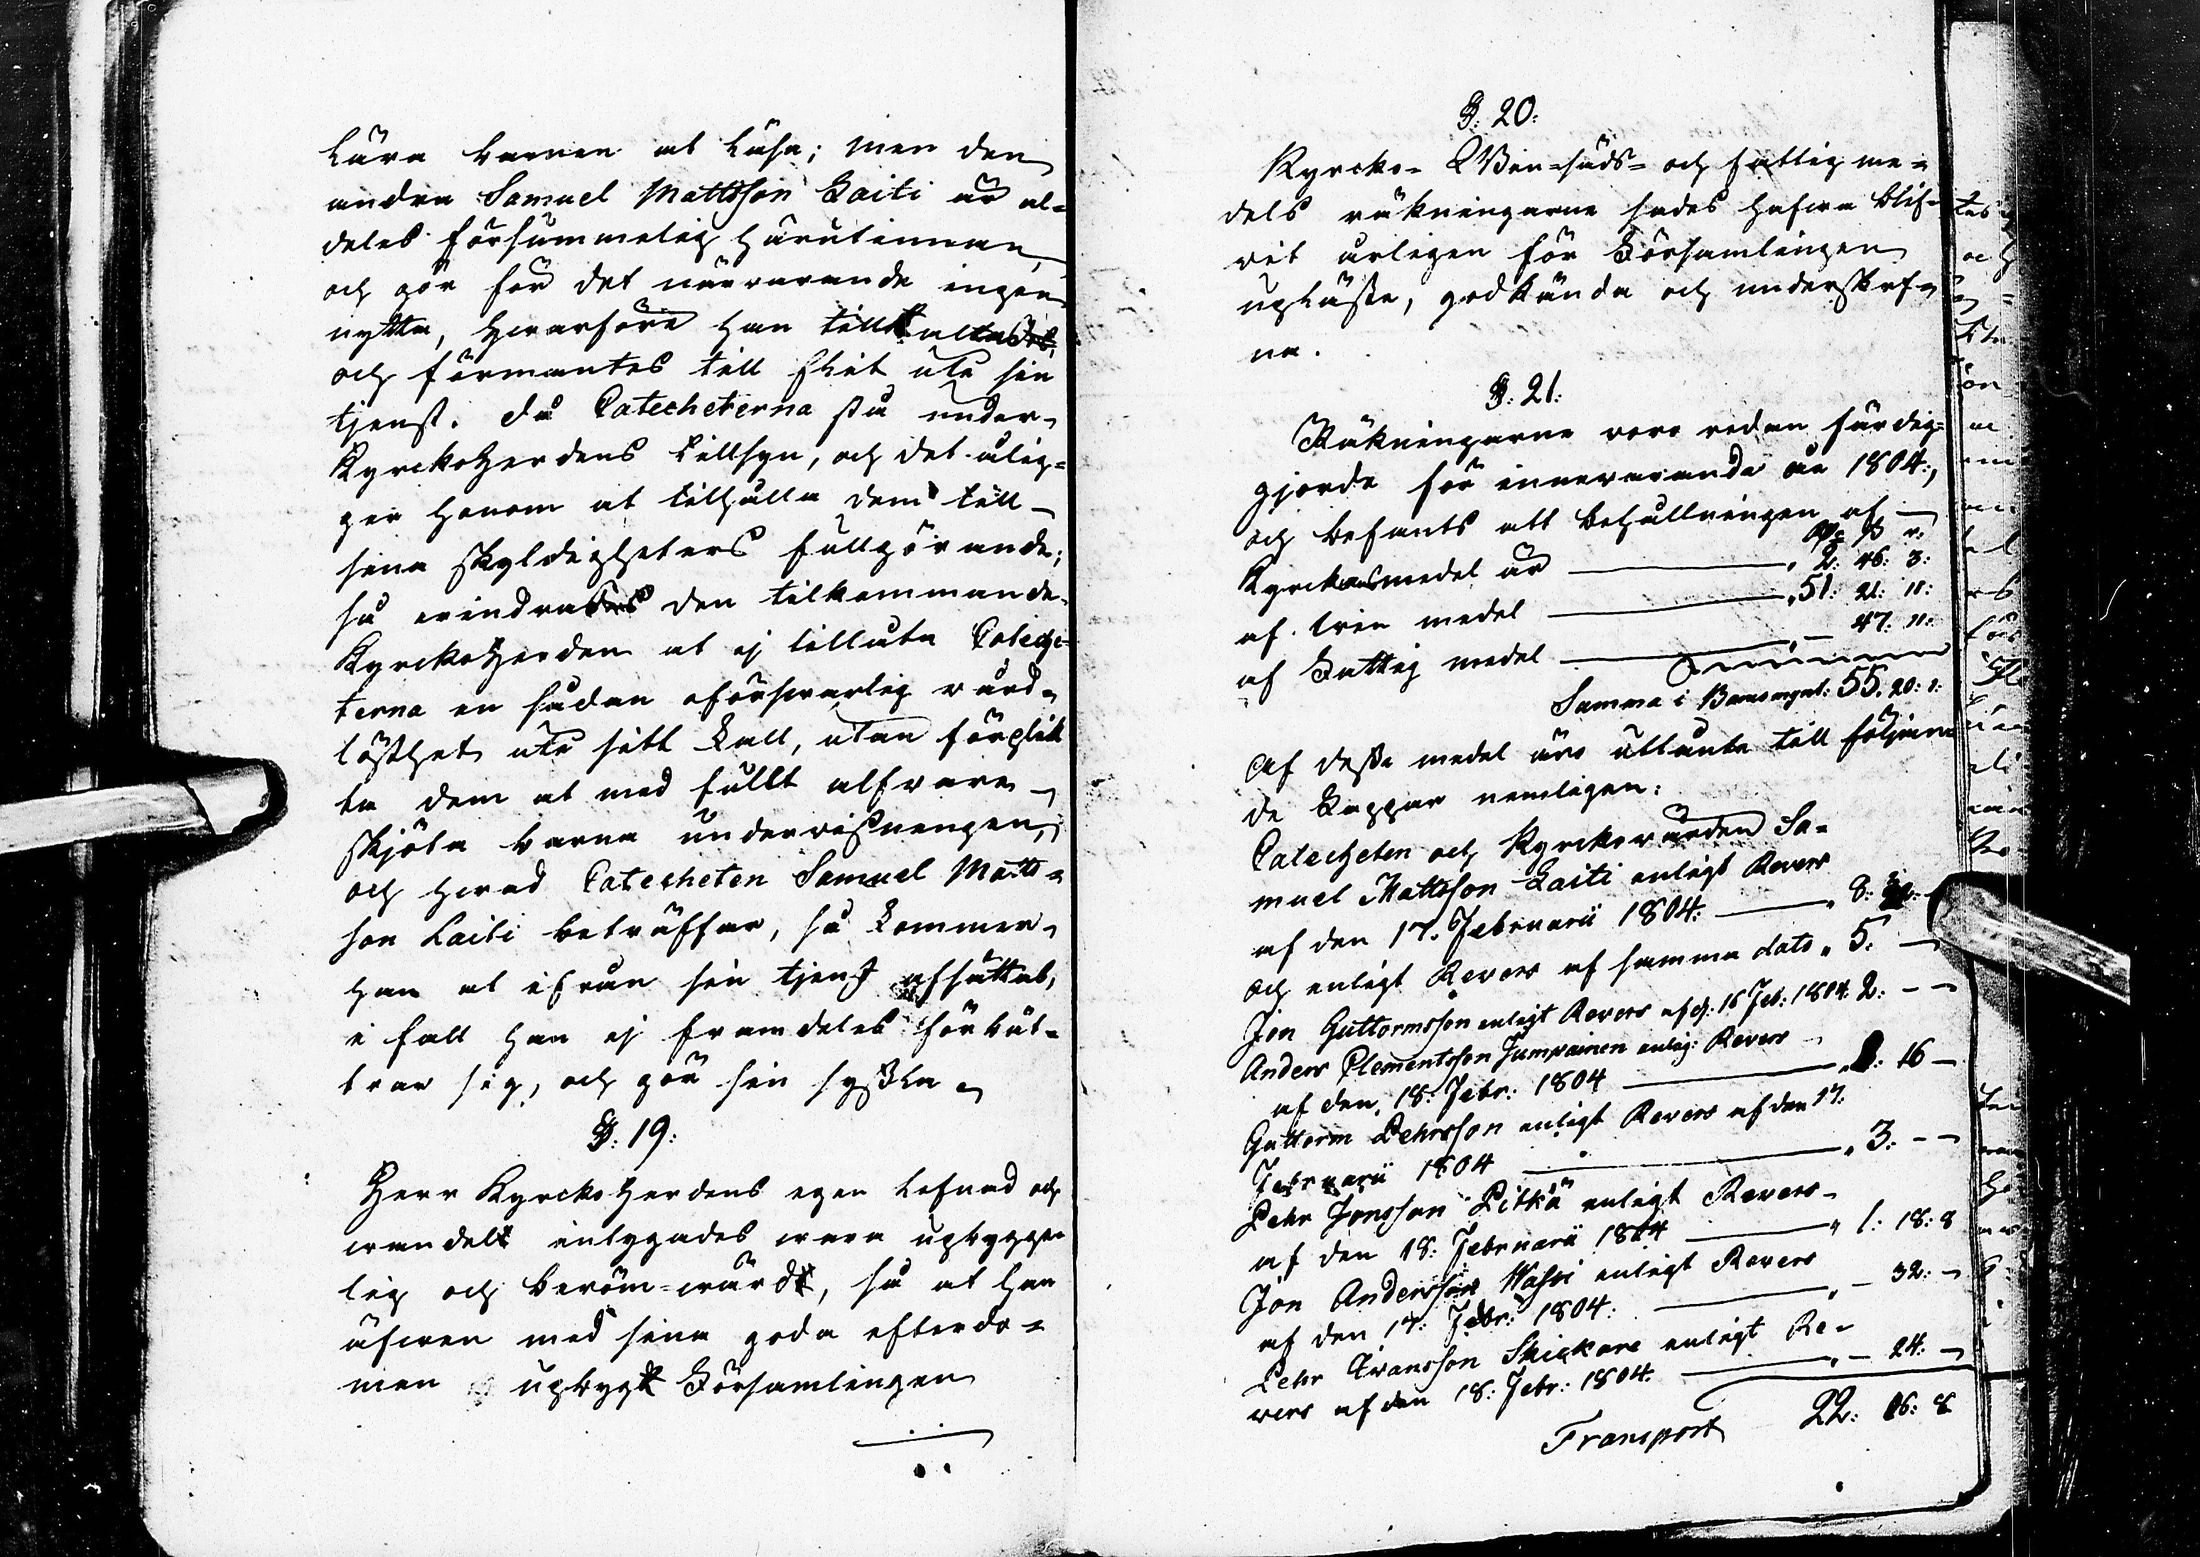 lära barnen at läsa; men den
andra Samuel Mattsson Laiti är al-
deles försummelig härutinnan,
och gör för det närvarande ingen
nytta, hvarföre han tilltaltades,
och förmantes till flit uti sin
tjenst. Då Catecheterna stå under
KyrckoHerdens tillsyn, och det ålig-
ger honom at tilhålla dem till
sina skyldigheters fullgörande;
så erindrades den tilkommande
KyrckoHerden at ej tillåta Cateche-
terna en sådan oförsvarlig vård-
löshet uti sitt kall, utan förplik
ta dem at med fullt alfvare
skjöta barna undervisningen,
och hvad Catecheten Samuel Matts-
son Laiti beträffar, så kommer
han at ifrån sin tjenst afsättas,
i fall han ej framdeles förbät-
trar sig, och gör sin syssla.
§. 19:
Herr KyrckoHerdens egen lefnad och
vandel intygades vara upbygge-
lig och beröm-värd, så at han
äfven med sina goda efterdö-
men upbygt Församlingen
§. 20:
Kyrcko- QVen-säds- och fattig me-
dels räkningarne sades hafva blif-
vit årligen för Församlingen
upläste, godkända och underskrf-
na.
§. 21:
Räkningarne voro redan färdig-
gjorde för innevarande år 1804,
och befants att behållningen af
Kyrckans medel är 2: 46: 3:
af qven medel 51: 21: 11:
af Fattig medel 47: 11:
Summa i Banco mynt: 55. 20: 1:
Af desse medel äro utlånte till följan
de Lappar nemligen:
Catecheten och Kyrckovärden Sa-
muel Mattsson Laiti enligt Revers
af den 17. Februarii 1804. 8:
och enligt Revers af samma dato 5. —
Jon Guttormsson enligt Revers af d. 16 Feb: 1804. 2: - -
Anders Clementsson Jumpainen enlig: Revers
af den 18: Febr: 1804 16 —
Guttorm Pehrsson enligt Revers af den 17.
Februarii 1804 3. - -
Pehr Jonsson Pitkä enligt Revers
af den 18: Februarii 1804 1: 18: 8
Jon Andersson Wasri enligt Revers
af den 17: Febr: 1804: - 32: -
Pehr Ivansson Skickare enligt Re-
vers af den 18: Febr: 1804. - 24. -
Transport 22: 16: 8